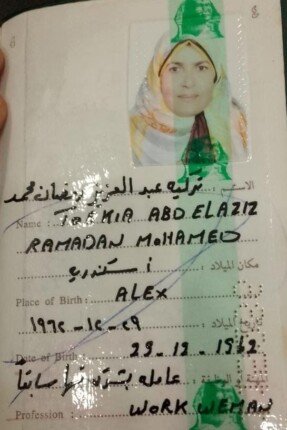 الاسم: تركيه عبد العزيز رمضان محمد
Name: TORKIA ABD ELAZIZ
RAMADAN MOHAMED
مكان الميلاد: اسكندريه
Place of Birth: ALEX
تاريخ الميلاد: ١٩٦٢-١٢-٢٩
Date of Birth: 29-12-1962
عامله بشركه سابقا
Profession: WORK WEMAN